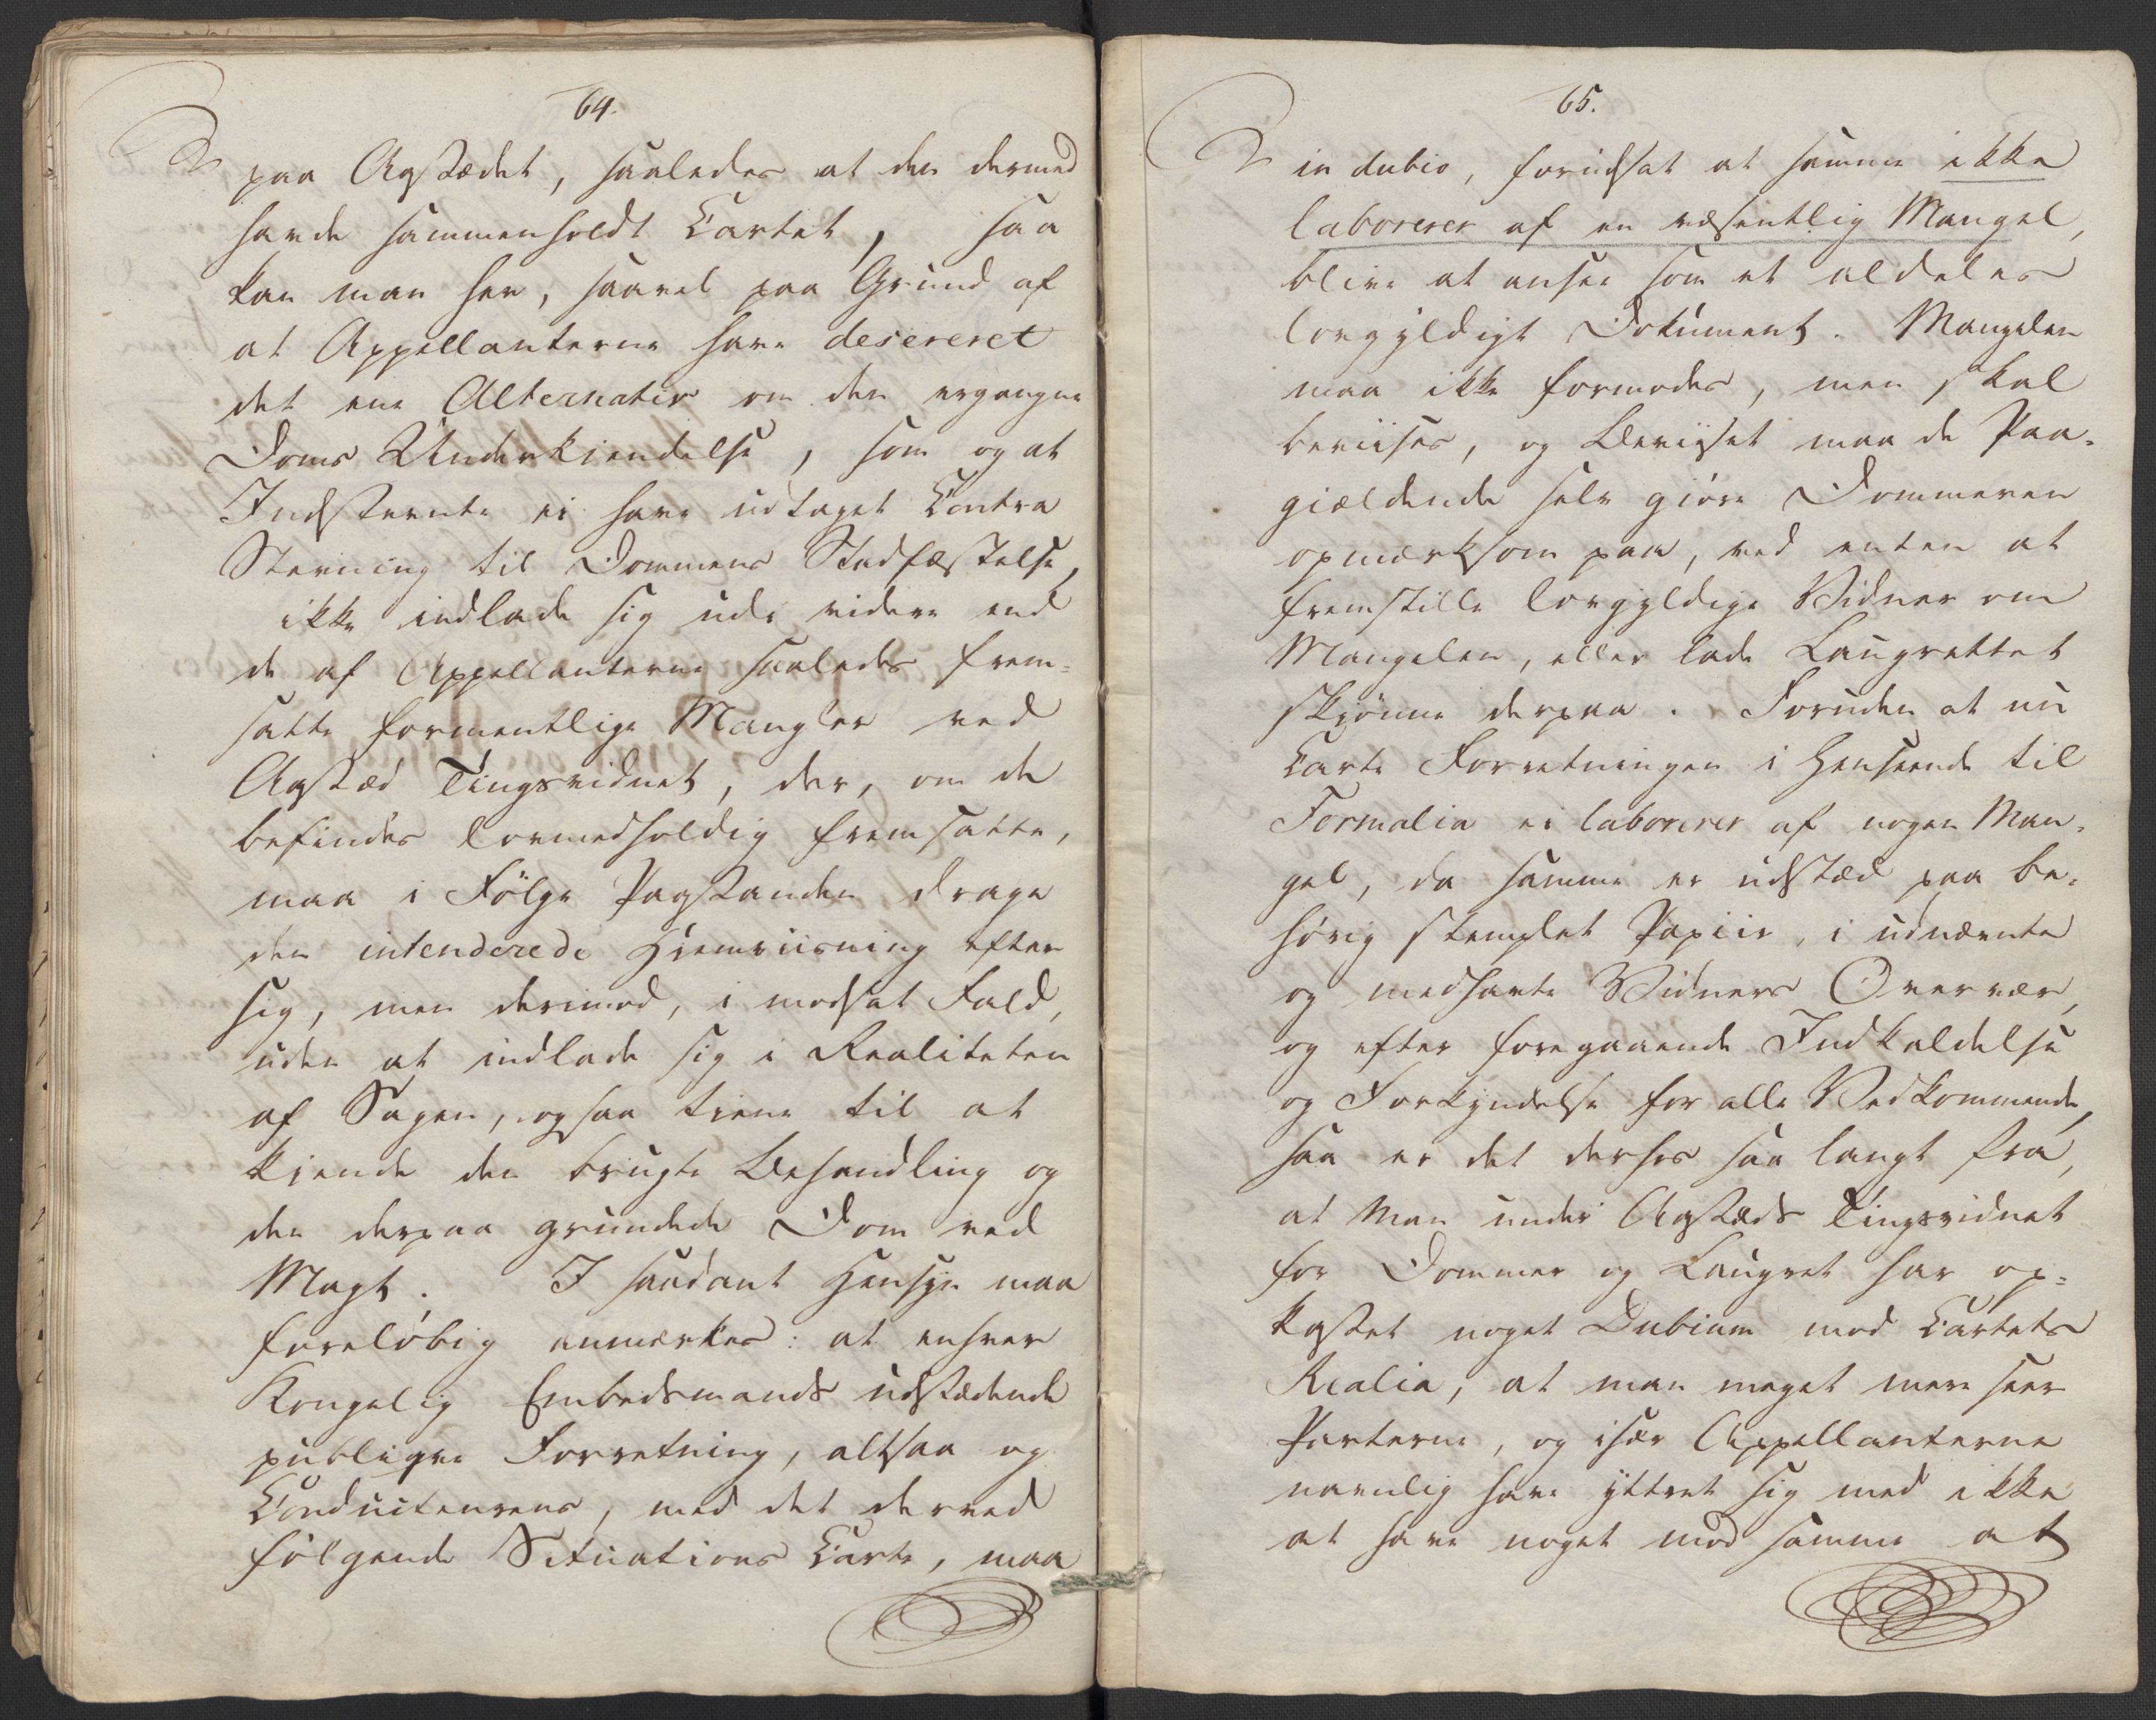 64.
paa Aastædet, saaledes at den dermed
havde sammenholdt Cartet, saa
kan man her, saavel paa Grund af
at Appellanterne have desereret
det ene Alternativ om den ergangne
Doms Underkiendelse, som og at
Indstevnte ei have udtaget Contra
Stevning til Dommens Stadfæstelse,
ikke indlade sig udi videre end
de af Appellanterne saaledes frem-
satte formentlige Mangler ved
Aastæd Tingsvidnet, der, om de
befindes lovmedholdig fremsatte,
maa i Følge Paastanden drage
den intenderede Hiemviisning efter
sig, men derimod, i modsat Fald,
uden at indlade sig i Realiteten
af Sagen, ogsaa tiene til at
kiende den brugte Behandling og
den derpaa grundede Dom ved
Magt. I saadant Hensyn maa
foreløbig anmærkes: at enhver
Kongelig Embedsmands udstædende
publiqve Forretning, altsaa og
Conducteurens, med det derved
følgende Situations Carte, maa
65.
in dubio, forudsat at samme ikke
laborerer af en væsentlig Mangel,
blive at ansee som et aldeles
lovgyldigt Dokument. Mangelen
maa ikke formodes, men skal
beviises, og Beviiset maa de Paa-
giældende selv giøre Dommeren
opmærksom paa, ved enten at
fremstille lovgyldige Vidner om
Mangelen, eller lade Laugrettet
skjønne derpaa. Foruden at nu
Carte Forretningen i Henseende til
Formalia ei laborerer af nogen Man-
gel, da samme er udstæd paa be-
hørig stemplet Papiir, i udnævnte
og medhavte Vidners Overvær,
og efter foregaaende Indkaldelse
og Forkyndelse for alle Vedkommende,
saa er det derhos saa langt fra,
at Man under Aastæds Tingsvidnet
for Dommer og Laugret har op-
kastet noget Dubium mod Cartets
Realia, at man meget mere seer
Parterne, og især Appellanterne
navnlig have yttret sig med ikke
at have noget mod samme at